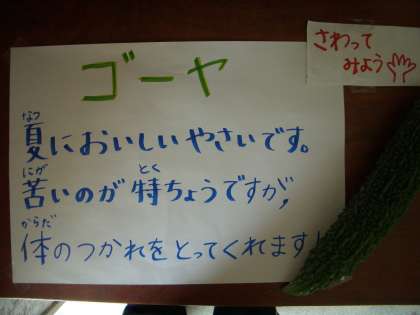 ゴーヤ
さわって
みよう
なつ
夏においしいやさいです。
にが とく
苦いのが特ちょうですが、
からだ
体のつかれをとってくれます!